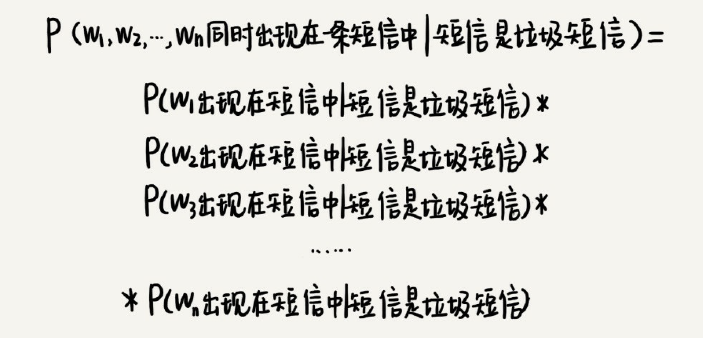 P(W₁,W₂,…,Wn同时出现在一条短信中|短信是垃圾短信)=
P(W₁出现在短信中|短信是垃圾短信)*
P(W₂出现在短信中|短信是垃圾短信)*
P(W₃出现在短信中|短信是垃圾短信)*
……
*P(Wₙ出现在短信中|短信是垃圾短信)